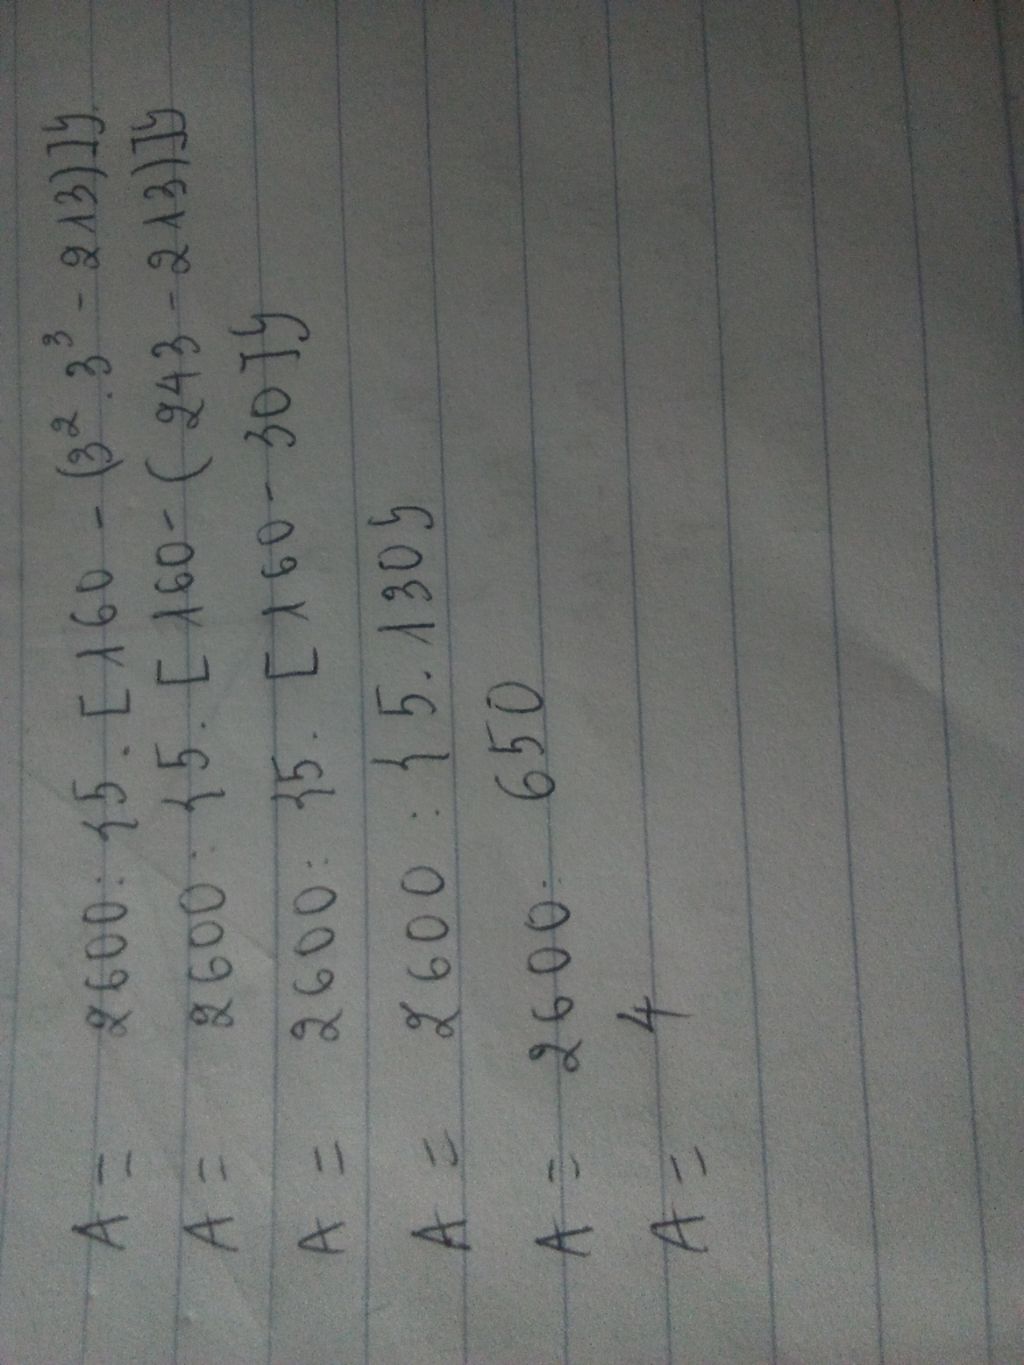 A = 2600 : {5 . [160 - (3² . 3³ - 213)]}
A = 2600 : {5 . [160 - (243 - 213)]}
A = 2600 : {5 . [160 - 30]}
A = 2600 : {5 . 130}
A = 2600 : 650
A = 4